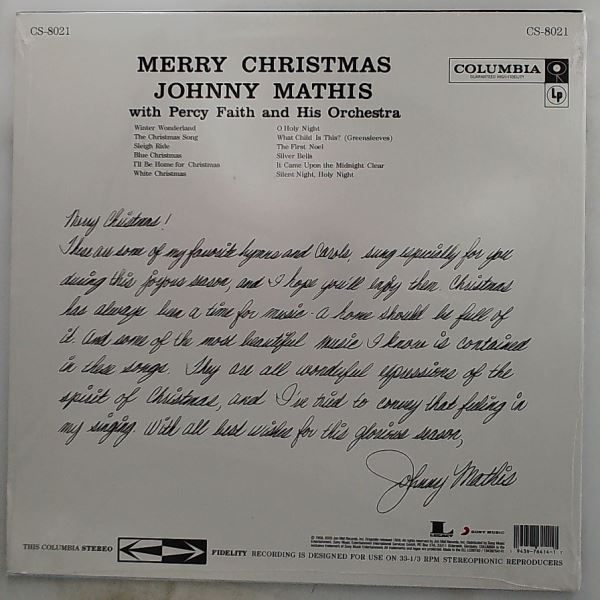 CS-8021
CS-8021
MERRY CHRISTMAS
JOHNNY MATHIS
with Percy Faith and His Orchestra
COLUMBIA
GUARANTEED HIGH-FIDELITY
Lp
Winter Wonderland
The Christmas Song
Sleigh Ride
Blue Christmas
I'll Be Home for Christmas
White Christmas
O Holy Night
What Child Is This? (Greensleeves)
The First Noel
Silver Bells
It Came Upon the Midnight Clear
Silent Night, Holy Night
Merry Christmas!
These are some of my favorite hymns and carols, sung especially for you
during this joyous season, and I hope you'll enjoy them. Christmas
has always been a time for music - a home should be full of
it. And some of the most beautiful music I know is contained
in these songs. They are all wonderful expressions of the
spirit of Christmas, and I've tried to convey that feeling in
my singing. With all best wishes for this glorious season,
Johnny Mathis
LEGACY
SONY MUSIC
THIS COLUMBIA STEREO FIDELITY RECORDING IS DESIGNED FOR USE ON 33-1/3 RPM STEREOPHONIC REPRODUCERS